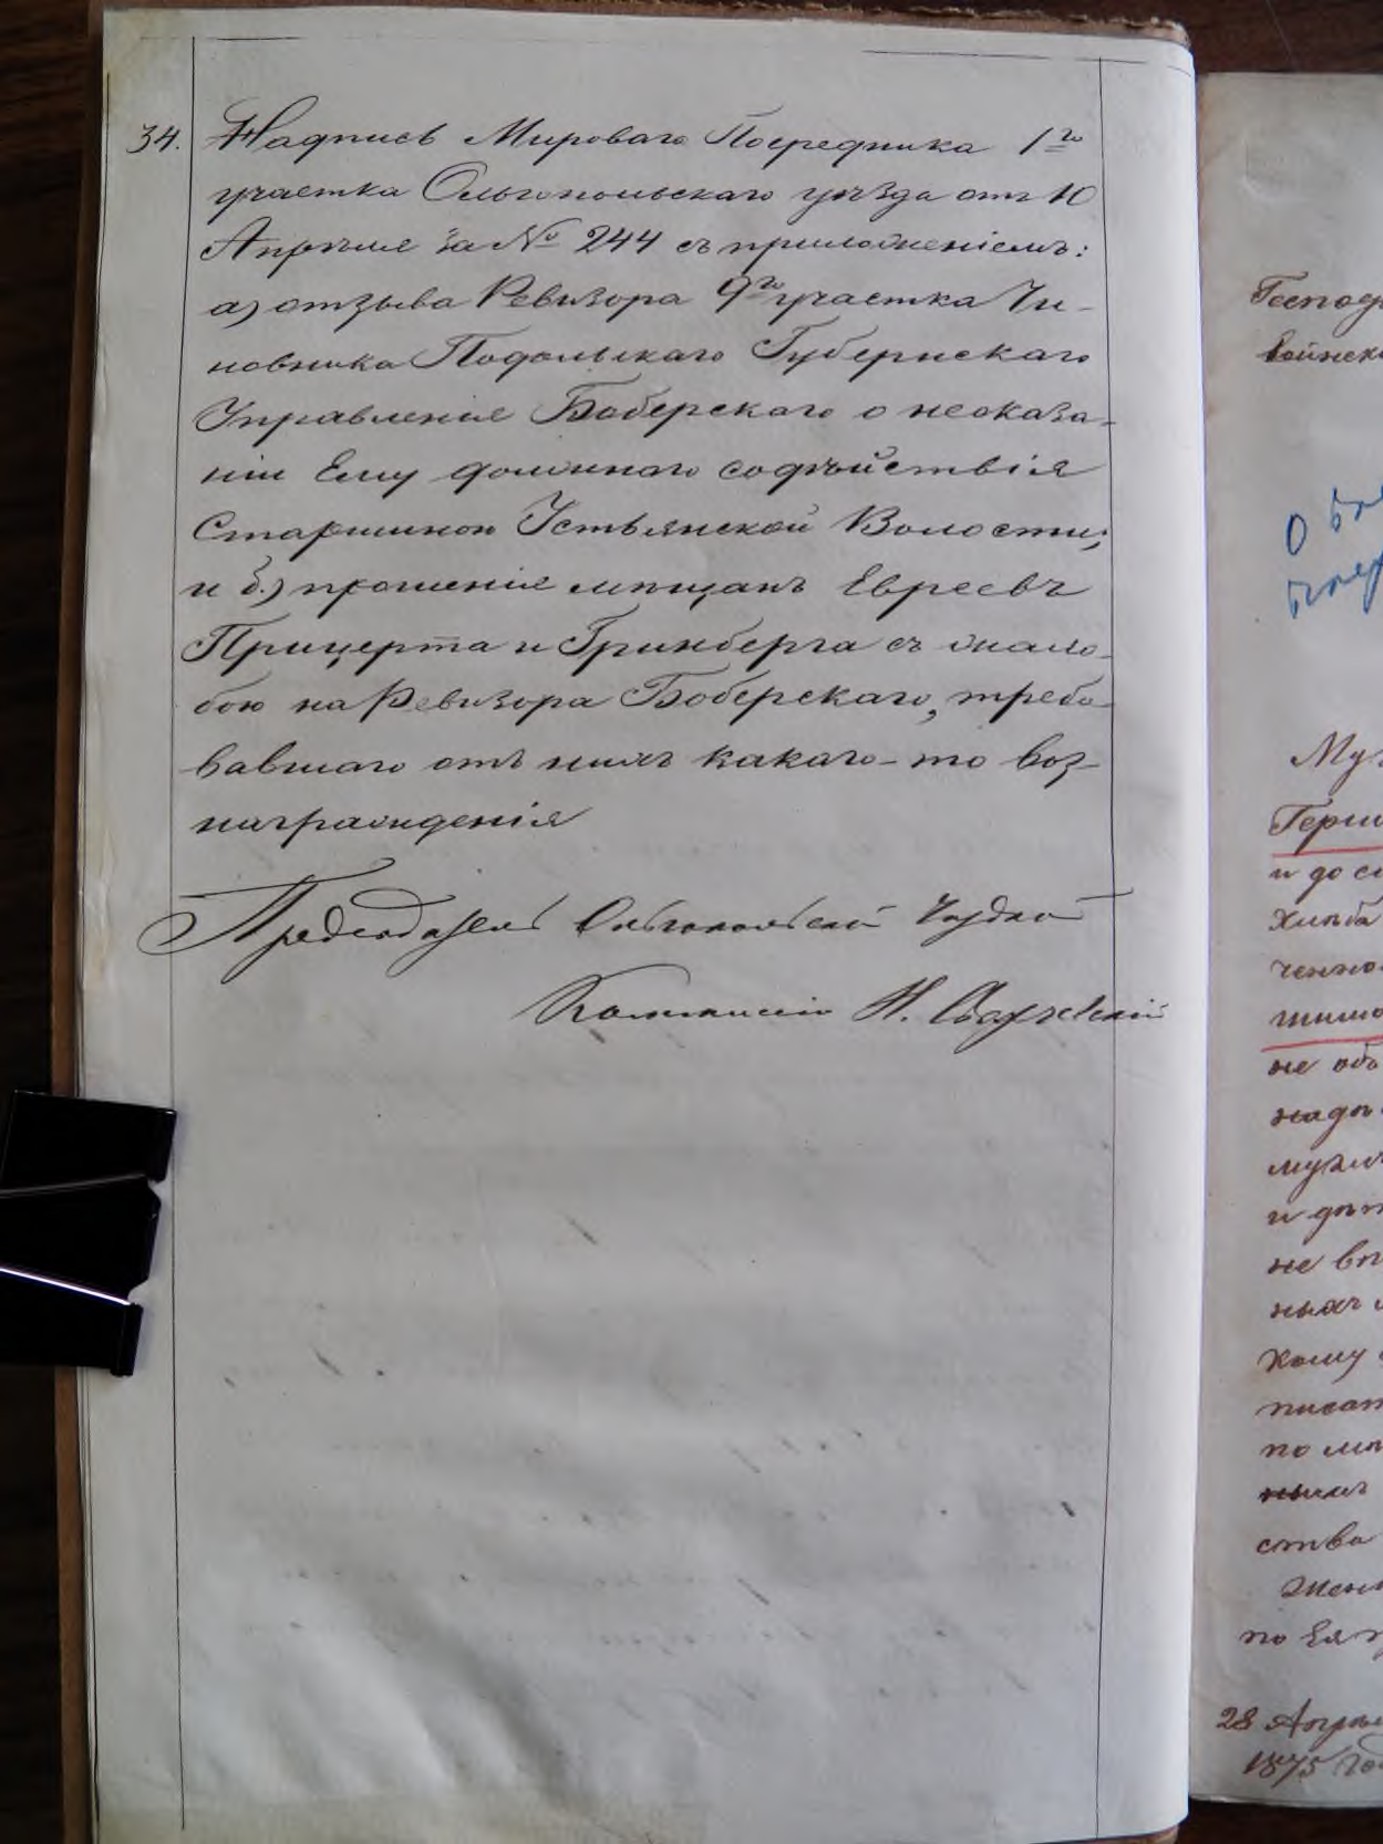 34. Надпись Мироваго Посредника 1го
участка Ольгопольскаго уѣзда отъ 10
Апрѣля за № 244 съ приложеніемъ:
а) отзыва Ревизора 9го участка Чи-
новника Подольскаго Губернскаго
Управленія Боберскаго о неоказа-
ніи Ему должнаго содѣйствія
Старшиною Устьянской Волости;
и б.) прошенія мѣщанъ Евреевъ
Прицерта и Гринберга съ жало-
бою на Ревизора Боберскаго, требо-
вавшаго отъ нихъ какаго-то воз-
награжденія
Предсѣдатель Ольгопольской
Коммисіи Н.
Господ
войнск
О
Му
Герш
и до с
хлѣба
ченно
не
надѣ
и дѣт
не
ныхъ
кому
писат
по
ства
Жен
по Ея
28 Апрѣл
1875 го